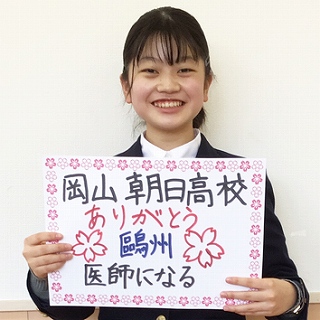 岡山朝日高校
ありがとう
鷗州
医師になる